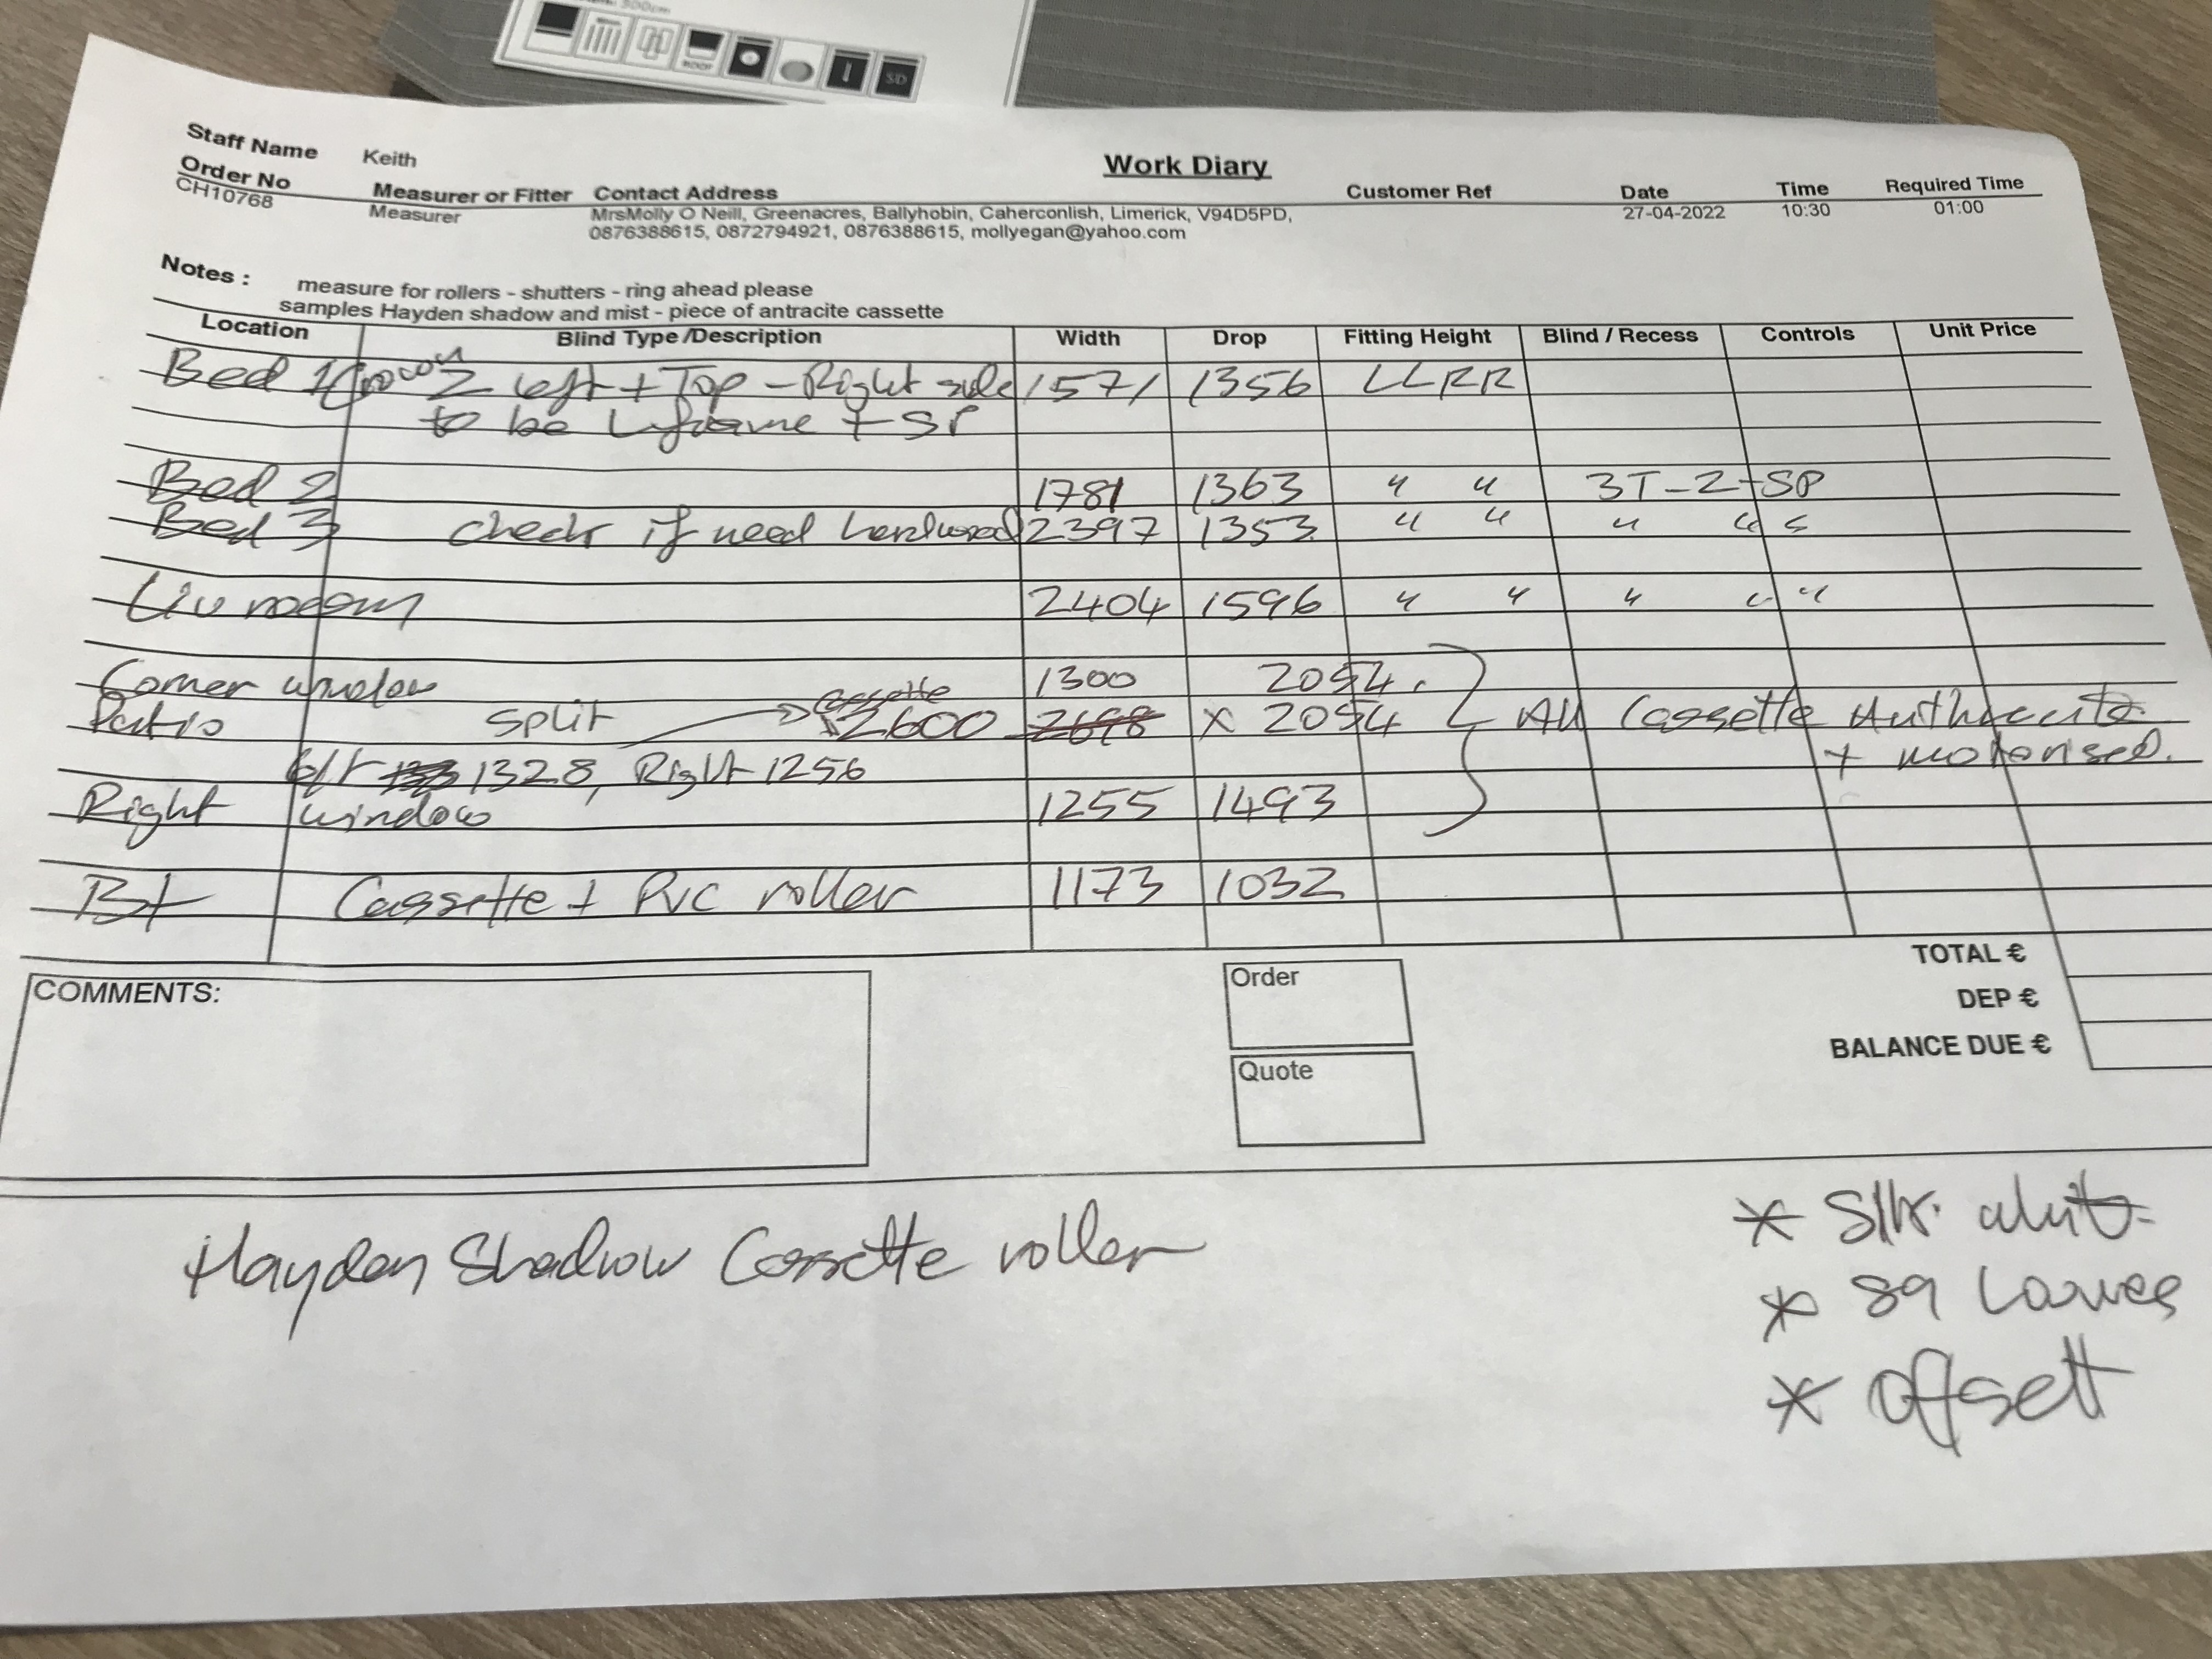 300cm
ROOF
SD
Work Diary
Staff Name Keith
Order No Measurer or Fitter Contact Address Customer Ref Date Time Required Time
CH10768 Measurer MrsMolly O Neill, Greenacres, Ballyhobin, Caherconlish, Limerick, V94D5PD, 27-04-2022 10:30 01:00
0876388615, 0872794921, 0876388615, mollyegan@yahoo.com
Notes : measure for rollers - shutters - ring ahead please
samples Hayden shadow and mist - piece of antracite cassette
Location Blind Type /Description Width Drop Fitting Height Blind / Recess Controls Unit Price
Bed 1 2 left + Top - Right side 1571 1356 LLRR
to be L frame + SP
Bed 2 1781 1363 " " 3T-2-SP
Bed 3 check if need 2397 1353 " " " "
Liv room 2404 1596 " " " " "
Corner window 1300 2054.
cassette
Patio split 2600 2698 x 2054 All Cassette Anthracite
+ motorised.
left 1328, Right 1256
Right window 1255 1493
Cassette + PVC roller 1173 1032
COMMENTS:
Order
Quote
TOTAL €
DEP €
BALANCE DUE €
Hayden Shadow Cassette roller
* Slk. white
* 89 Louvres
* offsett